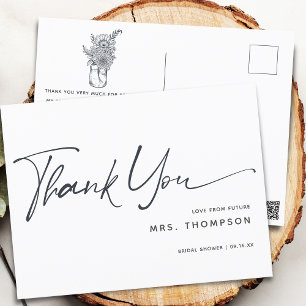 THANK YOU VERY MUCH FOR
Thank You
LOVE FROM FUTURE
MRS. THOMPSON
BRIDAL SHOWER | 09.15.XX